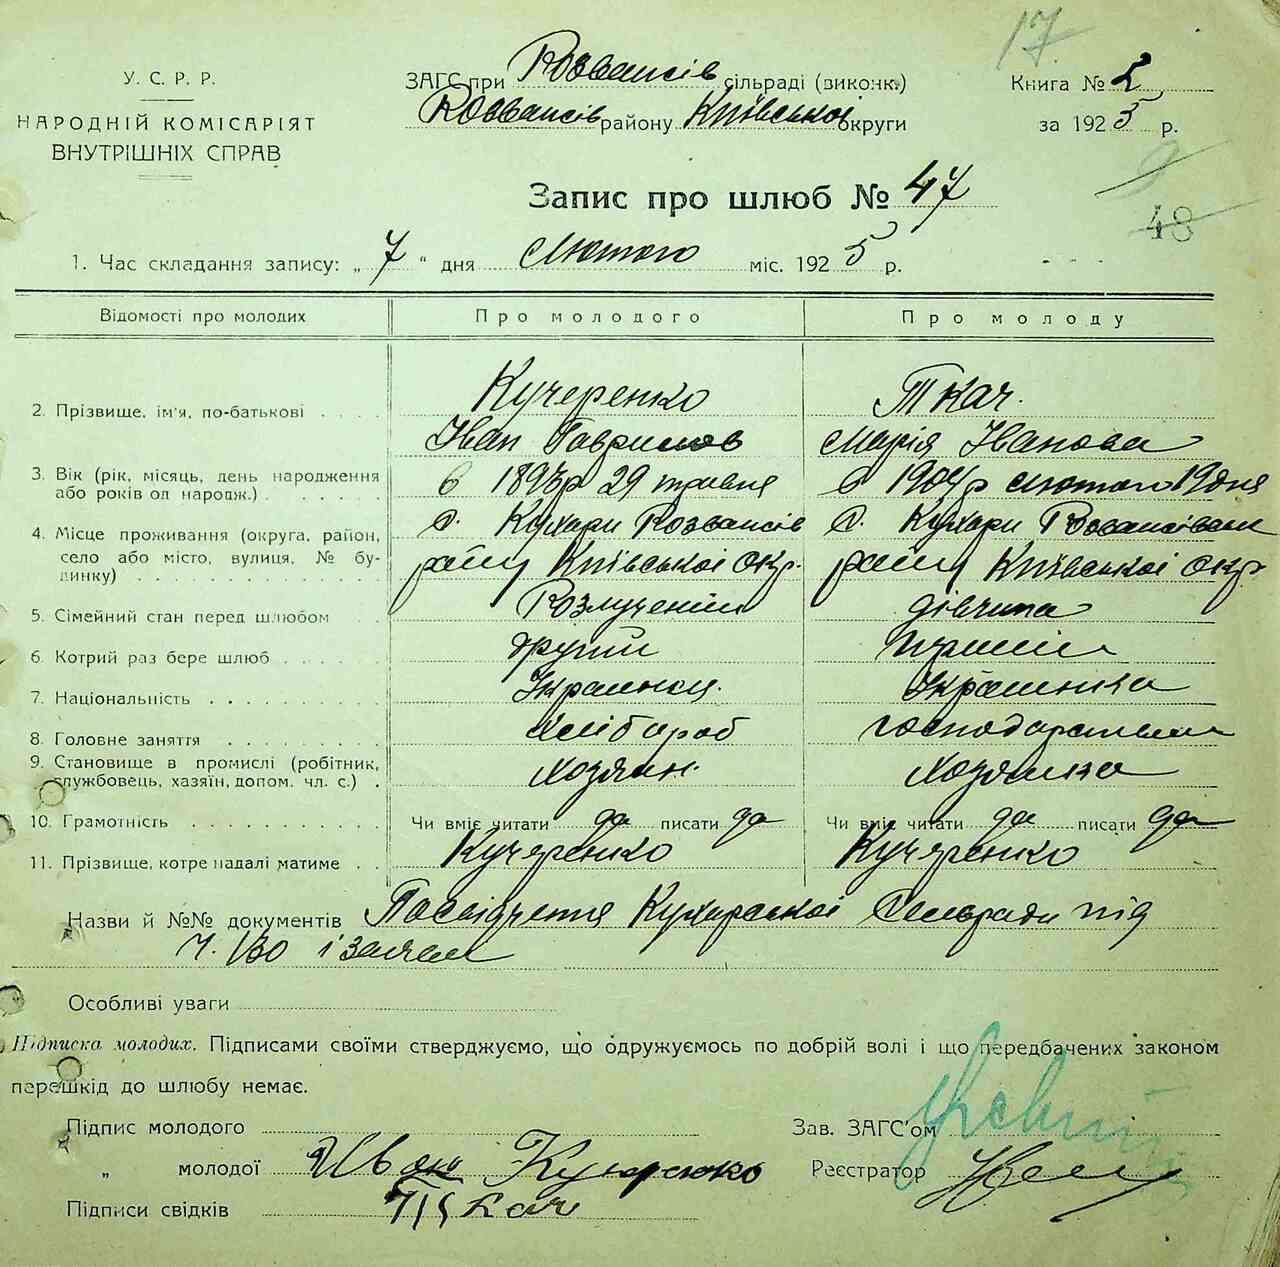 17
У. С. Р. Р.
НАРОДНІЙ КОМІСАРІЯТ
ВНУТРІШНІХ СПРАВ
ЗАГС при Розважів сільраді (виконк.)
Розважів району Київської округи
Книга №
за 1925 р.
Запис про шлюб № 47
48
1. Час складання запису: „ 7 “ дня Лютого міс. 1925 р.
Відомості про молодих Про молодого Про молоду
2. Прізвище, ім'я, по-батькові Кучеренко Ткач.
Іван Гаврилов Марія Іванова
3. Вік (рік, місяць, день народження або років од народж.) в 1897р 29 травня в 1904р лютого 19 дня
4. Місце проживання (округа, район, село або місто, вулиця, № будинку) с. Кухари Розважів с. Кухари
району Київської окр. району Київської окр
5. Сімейний стан перед шлюбом Розлучений дівчина
6. Котрий раз бере шлюб другий перший
7. Національність Українец. Українка
8. Головне заняття хлібороб
9. Становище в промислі (робітник, службовець, хазяїн, допом. чл. с.) Хозяин. Хозяйка
10. Грамотність Чи вміє читати да писати да Чи вміє читати да писати да
11. Прізвище, котре надалі матиме Кучеренко Кучеренко
Назви й №№ документів Посвідчення Кухарської Сельради під
ч. 130 і
Особливі уваги
Підписка молодих. Підписами своїми стверджуємо, що одружуємось по добрій волі і що передбачених законом
перешкід до шлюбу немає.
Підпис молодого
„ молодої Иван Кучеренко
Підписи свідків Ткач
Зав. ЗАГС'ом
Реєстратор